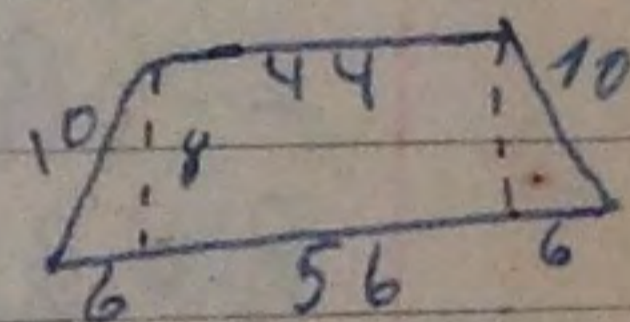 44
10
10
8
6
56
6